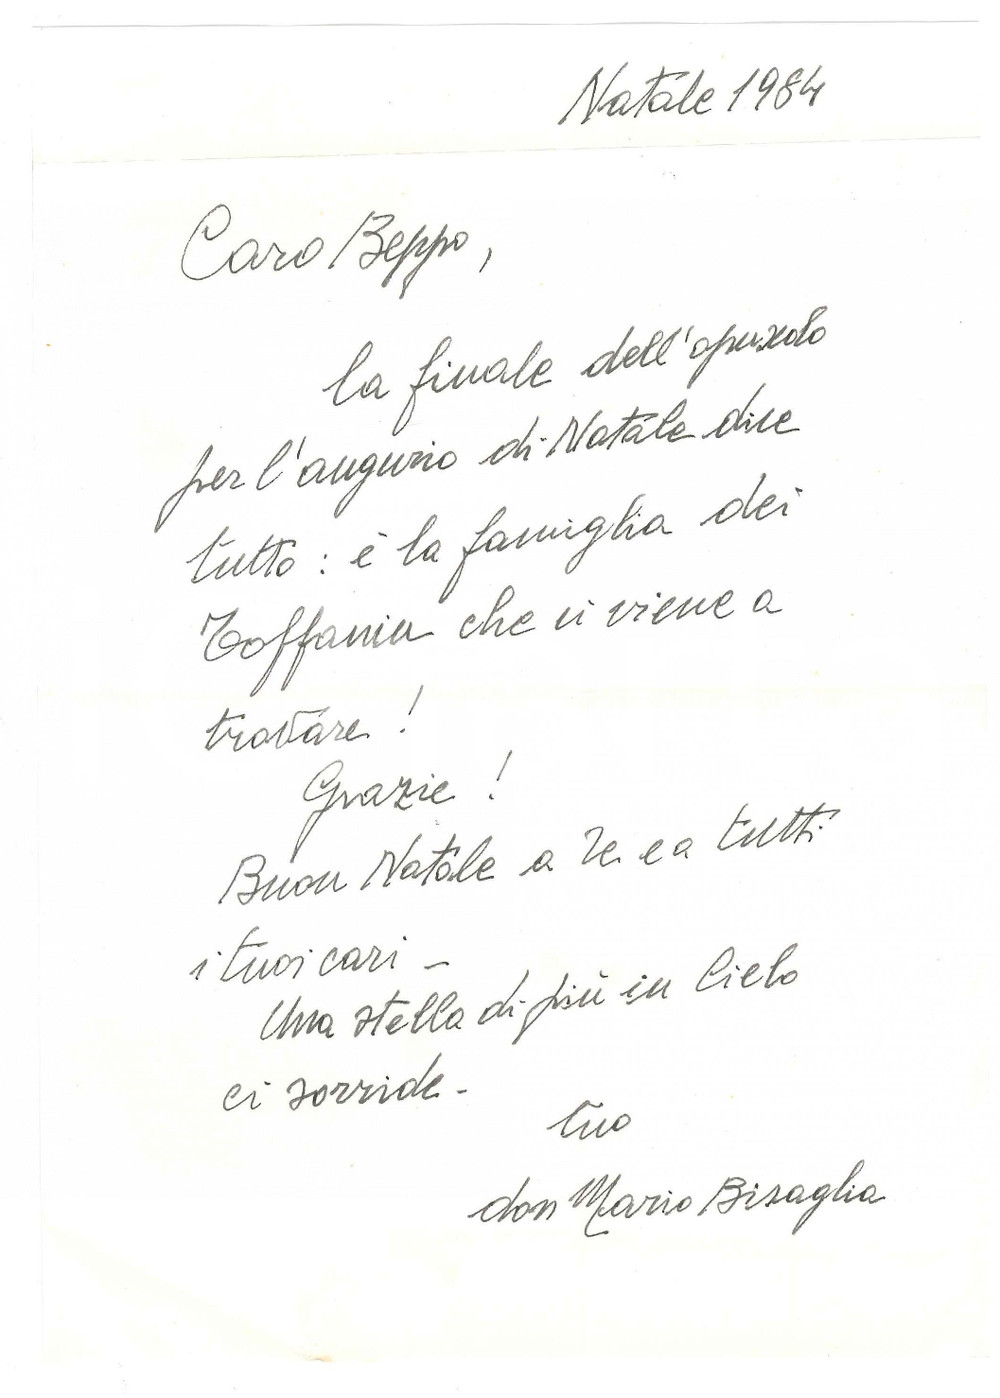 Natale 1984
Caro Beppo,
la finale dell'opuscolo
per l'augurio di Natale dice
tutto: è la famiglia dei
Toffanin che ci viene a
trovare!
Grazie!
Buon Natale a Te e a tutti
i tuoi cari -
Una stella di più in Cielo
ci sorride -
tuo
don Mario Bisaglia